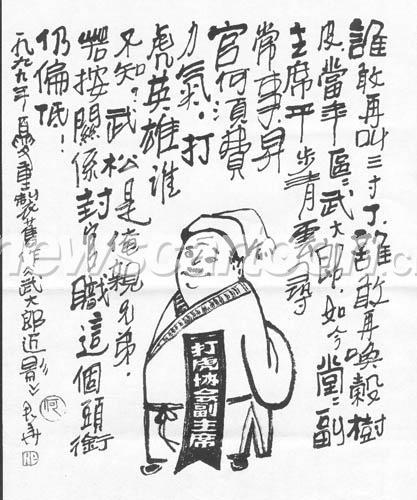 誰敢再叫三寸丁、誰敢再喚穀樹
皮、當年區〻武大郎、如今堂〻副
主席、平步青雲尋
常事、昇
官何須費
力氣、打
虎英雄谁
不知?武松是俺親兄弟.
若按關係封官職這個頭銜
仍偏低!
一九九九年夏重製舊作《武大郎近影》
打虎协会副主席
newscartoon.c